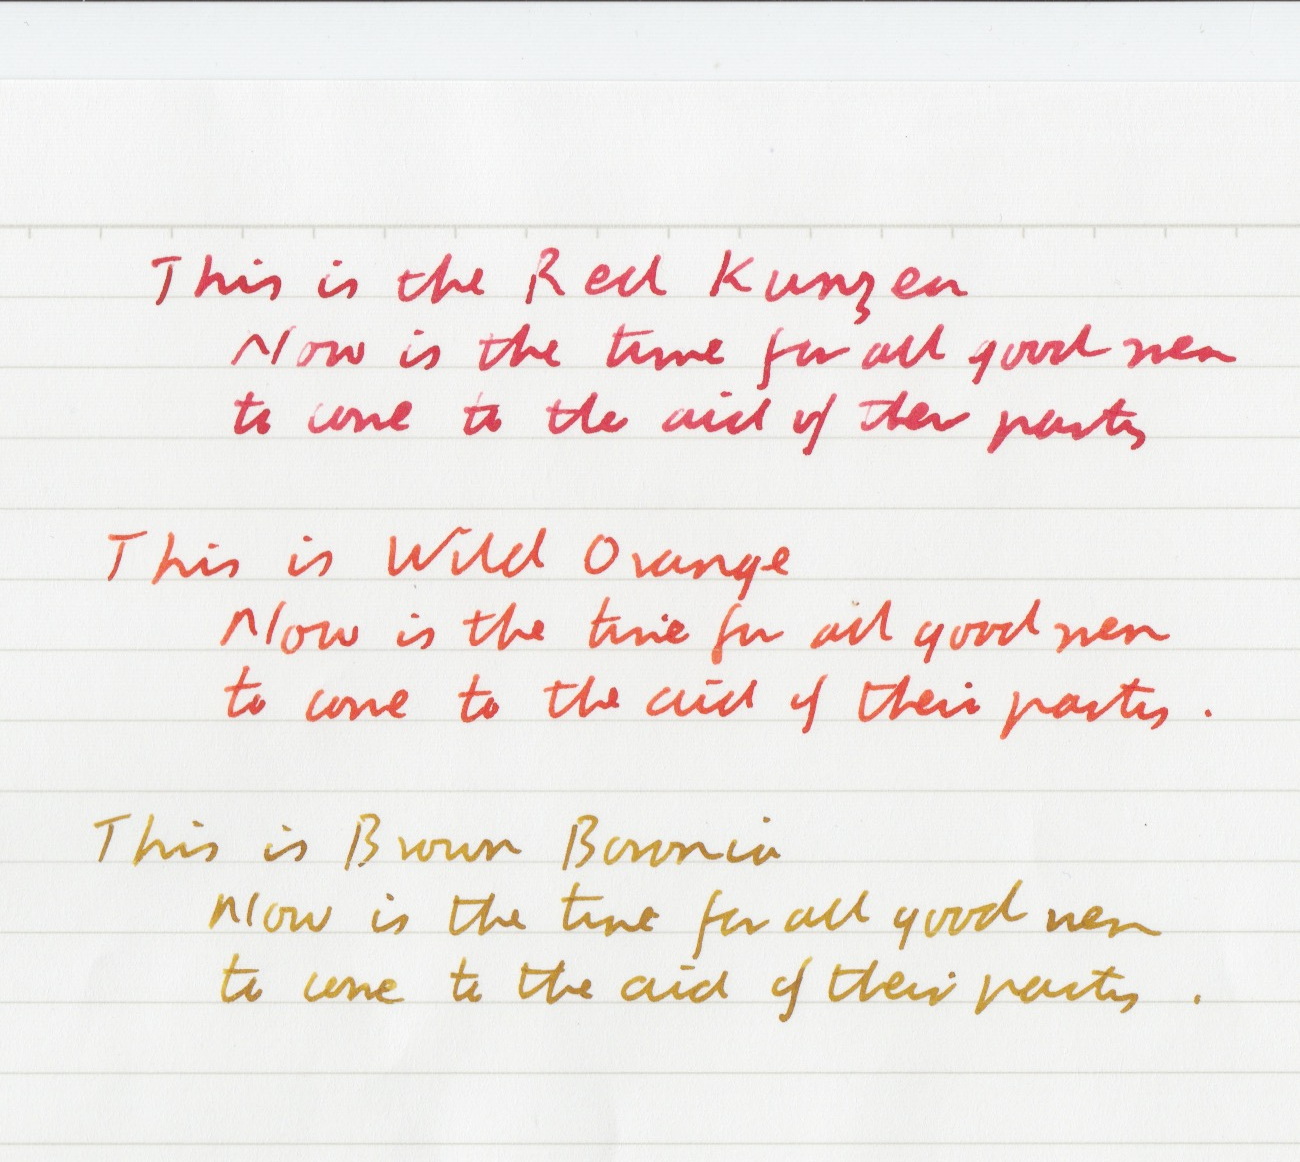 This is the Red Kunzea
Now is the time for all good men
to come to the aid of their party
This is Wild Orange
Now is the time for all good men
to come to the aid of their party .
This is Brown Boronia
Now is the time for all good men
to come to the aid of their party .